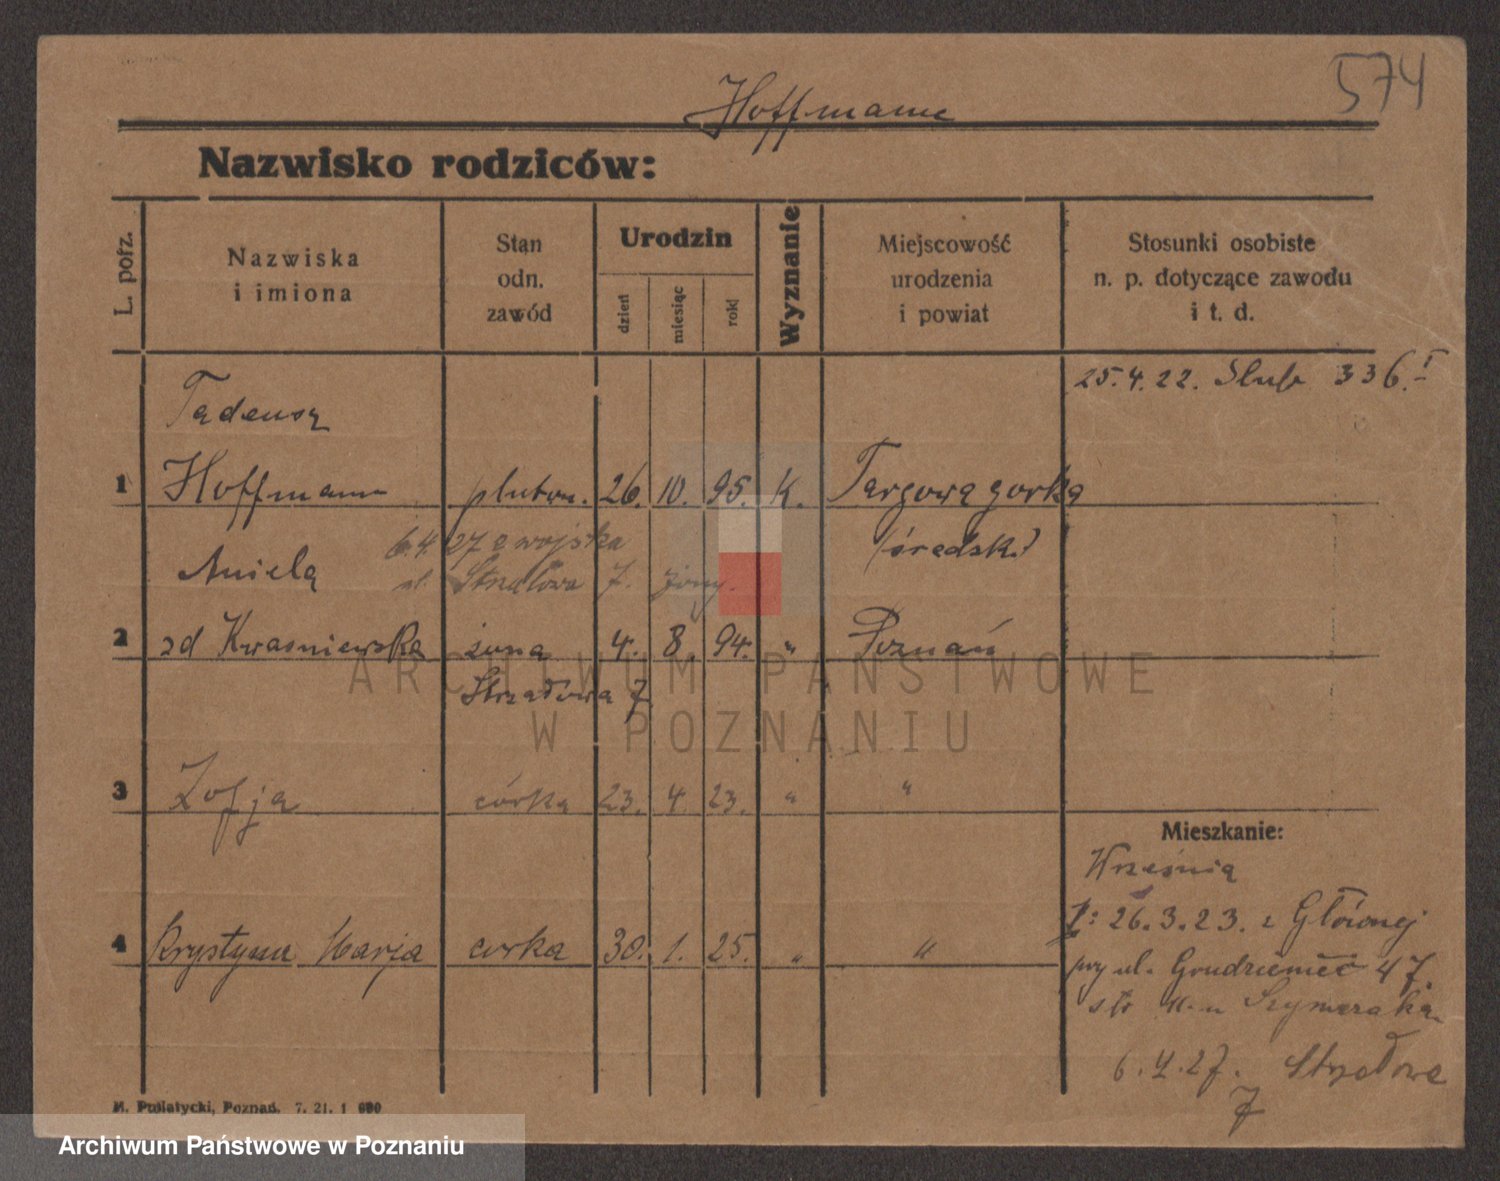 574
Hoffmann
Nazwisko rodziców:
L. porz.
Nazwiska
i imiona
Stan
odn.
zawód
Urodzin
dzień
miesiąc
rok
Wyznanie
Miejscowość
urodzenia
i powiat
Stosunki osobiste
n. p. dotyczące zawodu
i t. d.
25.4.22. Slub 336.I
Tadeusz
1 Hoffmann pluton. 26. 10. 95. K. Targowa gorka
(średsk.)
6.4.27 z wojska
Aniela
ul. Strzałowa 7. żony.
2 zd Kwasniewska żona 4. 8 94. " Poznań
Strzałowa 7
3 Zofja córka 23. 4. 23. " "
Mieszkanie:
Września
4 Krystyna Marja corka 30. 1. 25. " "
26.3.23. z Głównej
przy ul. Grudzieniec 47.
6.4.27. Strzałowa
7
M. Putiatycki, Poznań. 7. 21. 1
ARCHIWUM PAŃSTWOWE
W POZNANIU
Archiwum Państwowe w Poznaniu